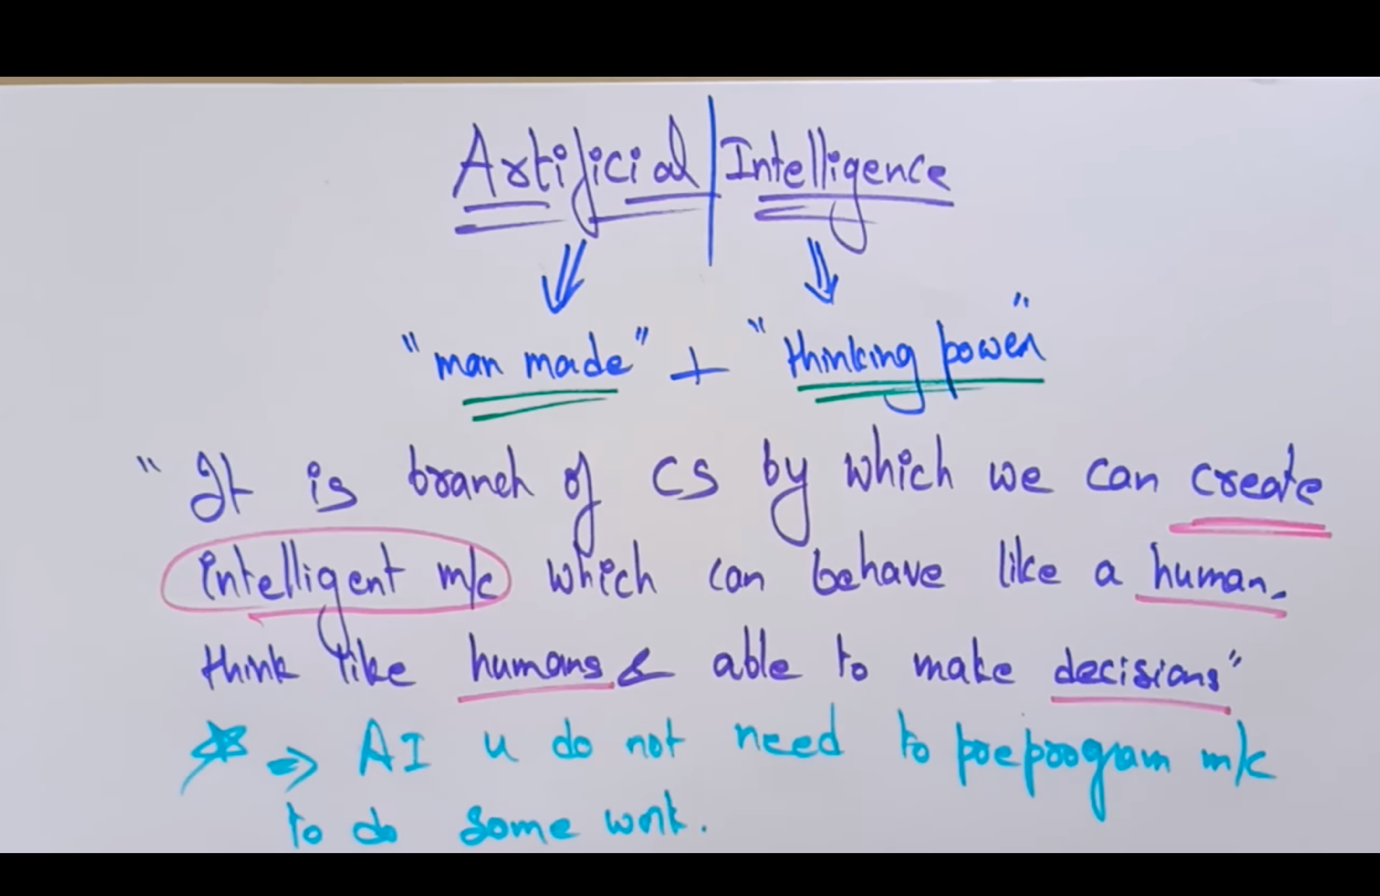 Artificial | Intelligence
"man made" + "thinking power"
"It is branch of CS by which we can create
intelligent m/c which can behave like a human.
think like humans & able to make decisions"
⇒ AI u do not need to preprogram m/c
to do some work.